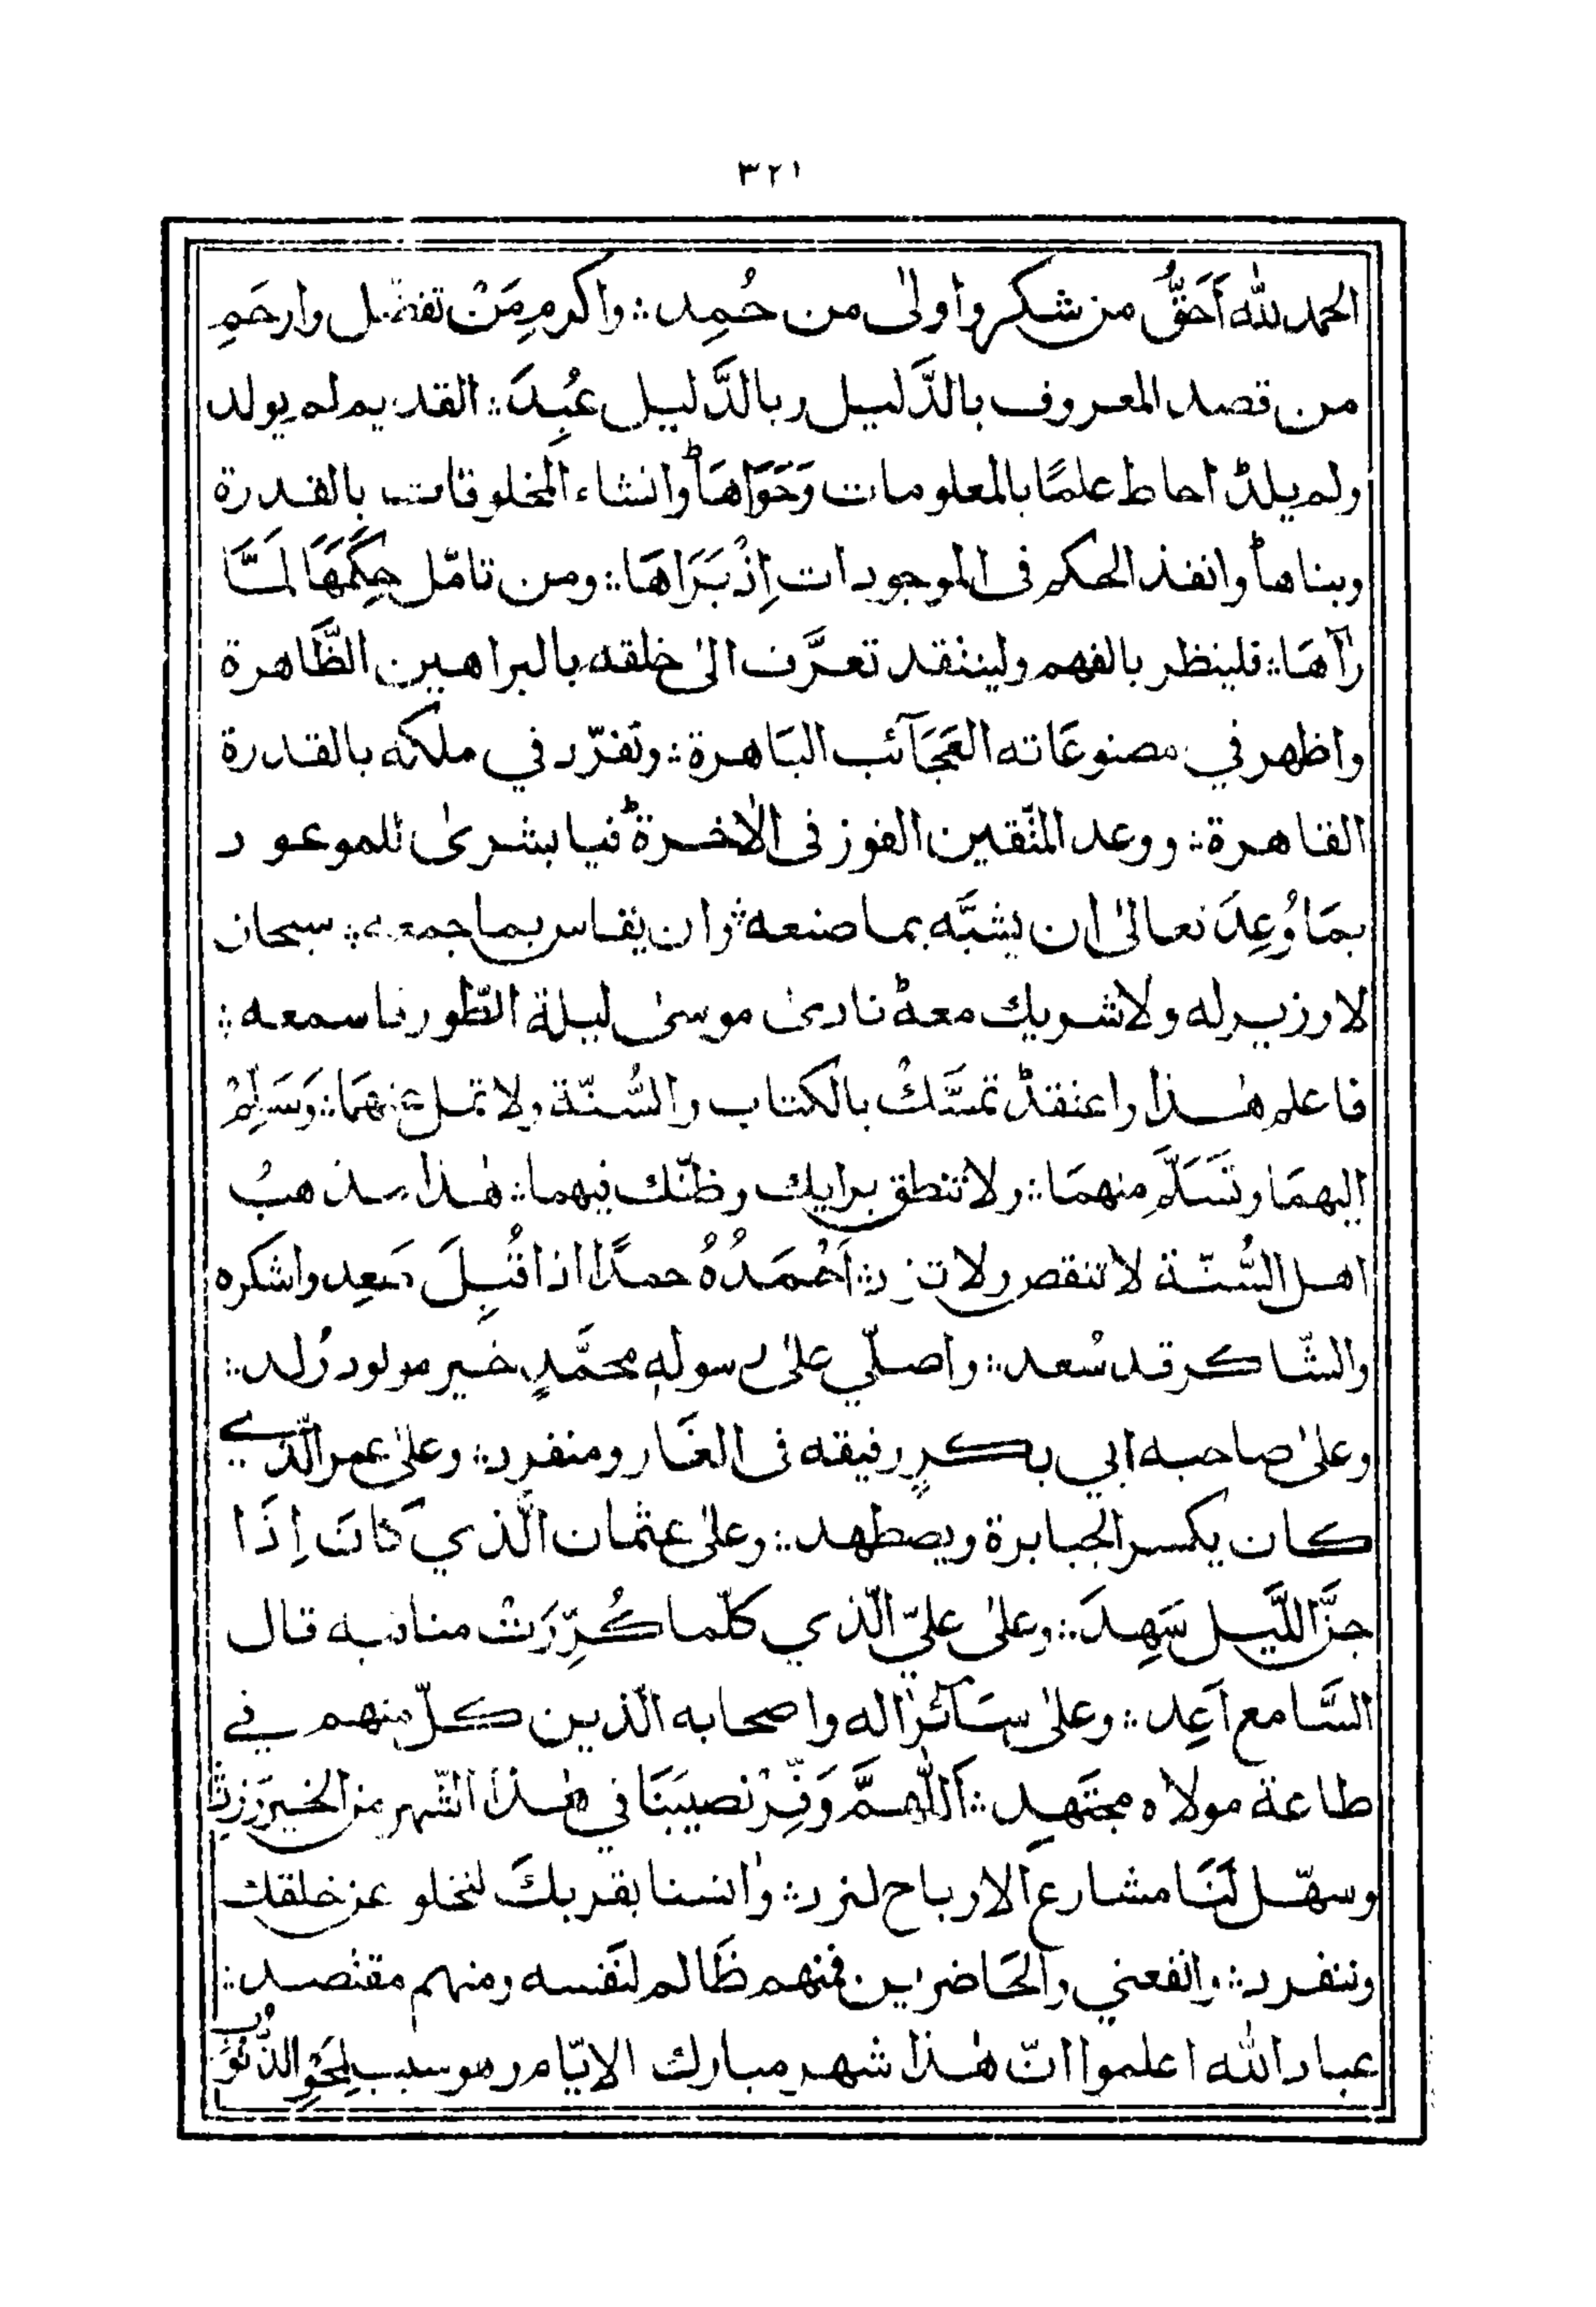 ٣٢١
الحمد لله اَحَقُّ من شكر واولىٰ من حُمِد :: واكرمِ مَنْ تفضّل وارحَمِ
من قصد المعروف بالدَّليل وبالدَّليل عُبِدَ :: القديم لم يولد
ولم يلد :: احاط علمًا بالمعلومات وَحَوَاهَا :: وانشاء المخلوقات بالقدرة
وبناها :: وانفذ الحكم فى الموجودات اِذْ بَرَاهَا :: ومن تامّل حِكَمَهَا لَمَّا
رآهَا :: فلينظر بالفهم ولينتقد تعرَّف الىٰ خلقه بالبراهين الظَّاهرة
واظهر في مصنوعَاته العَجَآئب البَاهرة :: وتفرّد في ملكه بالقدرة
القاهرة :: ووعد المتّقين الفوز فى الاٰخرة :: فيا بشرىٰ للموعود
بمَا وُعِدَ تعالىٰ ان يشبَّه بما صنعه :: وان يقاس بما جمعه :: سبحان
لا وزير له ولا شريك معه :: نادىٰ موسىٰ ليلة الطّور فاسمعه ::
فاعلم هٰذا واعتقد :: تمسَّكْ بالكتاب والسُّنّة ولا تمل عنهمَا :: وَسَلِّمْ
اليهمَا وتَسَلَّمِ منهمَا :: ولا تنطق برايك وظنّك فيهما :: هٰذا مذهبُ
اهل السُّنّة لا تنقص ولا تزد :: اَحْمَدُهُ حمدًا اذا قُبِلَ صَعِد واشكره
والشّاكر قد سُعد :: واصلّي علىٰ رسولهٖ محمَّدٍ خير مولود وُلد ::
وعلىٰ صاحبه ابي بكرٍ رفيقه فى الغَار ومنفرد :: وعلىٰ عمر الّذي
كان يكسر الجبابرة ويضطهد :: وعلىٰ عثمان الَّذي كَانَ اِذَا
جنَّ اللَّيل سَهِدَ :: وعلىٰ عليّ الّذي كلّما كُرِّرَتْ مناقبه قال
السَّامع اَعِد :: وعلىٰ سَآئر اٰله واصحابه الّذين كلّ منهم في
طاعة مولاه مجتَهِد :: اَللّٰهمَّ وَفِّرْ نصيبَنَا في هٰذا الشّهر من الخير وَزِدْ
وسهّل لَنَا مشارع الارباح لنرد :: واٰنسنا بقربكَ لنخلو عن خلقك
وننفرد :: وانفعني والحَاضرين فمنهم ظَالم لنَفسه ومنهم مقتصد ::
عباد الله اعلموا انّ هٰذا شهر مبارك الايّام وهو سبب لِمَحْوِ الذُّنُوبِ